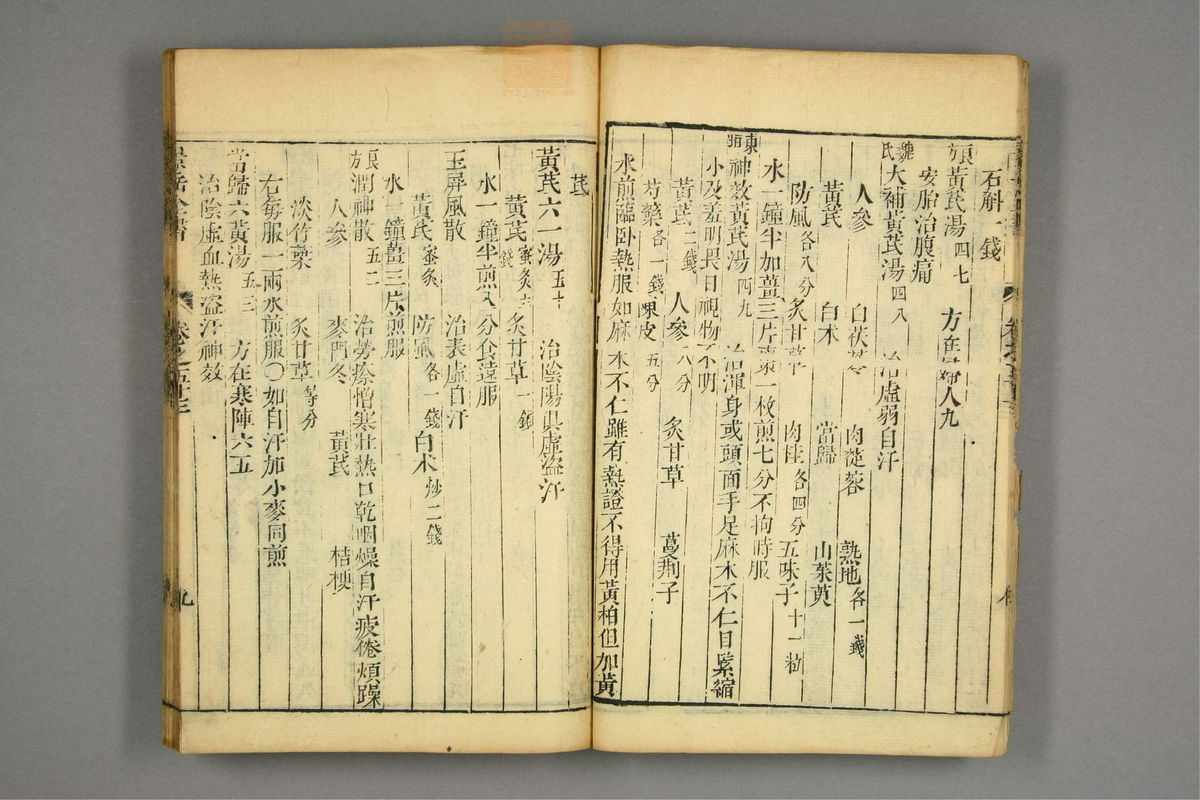 石斛一錢
良方黃芪湯四七 方在婦人九
安胎治腹痛
魏氏大補黃芪湯四八 治虛弱自汗
人參 白茯苓 肉蓯蓉 熟地各一錢
黃芪 白朮 當歸 山茱萸
防風各八分 炙甘草 肉桂各四分 五味子十一粒
水一鐘半加薑三片棗一枚煎七分不拘時服
東垣神效黃芪湯四九 治渾身或頭面手足麻木不仁目緊縮
小及羞明畏日視物不明
黃芪二錢 人參八分 炙甘草 蔓荆子
芍藥各一錢 陳皮五分
水煎臨卧熱服如麻木不仁雖有熱證不得用黃柏但加黃
芪
黃芪六一湯五十 治陰陽俱虛盜汗
黃芪蜜炙六錢 炙甘草一錢
水一鐘半煎八分食遠服
玉屏風散 治表虛自汗
黃芪蜜炙 防風各一錢 白朮炒二錢
水一鐘薑三片煎服
良方潤神散五二 治勞瘵憎寒壯熱口乾咽燥自汗疲倦煩躁
人參 麥門冬 黃芪 桔梗
淡竹葉 炙甘草等分
右每服一兩水煎服〇如自汗加小麥同煎
當歸六黃湯五三 方在寒陣六五
治陰虛血熱盜汗神效
景岳全書 卷之五十三 九